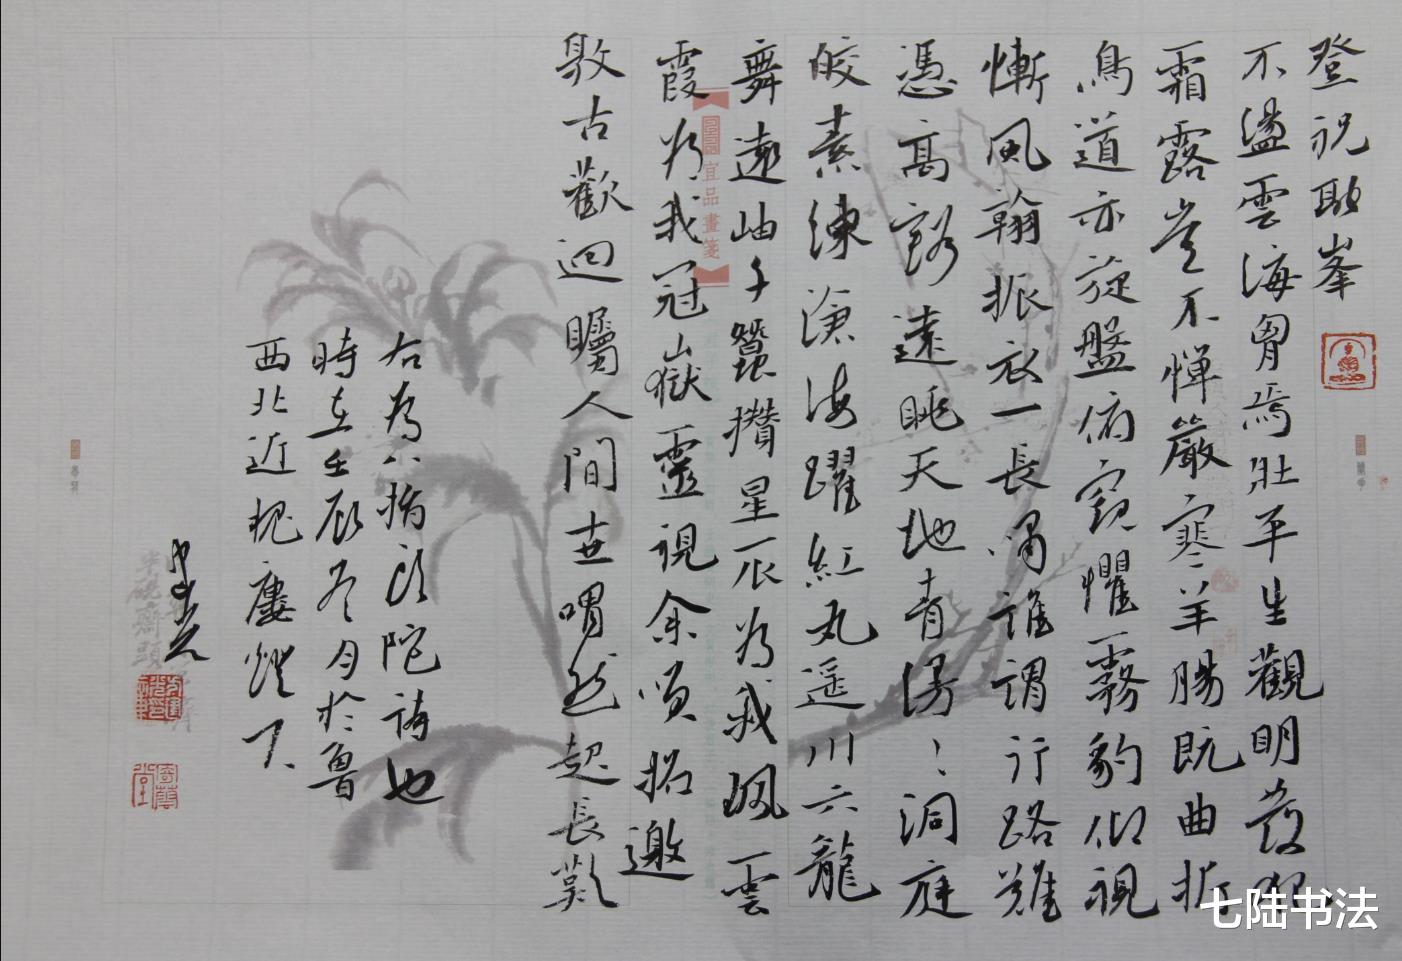 登祝融峯
不盪雲海胷焉壯平生觀明發犯
霜露豈不憚嚴寒羊腸既曲折
鳥道亦旋盤俯窺懼霧豹仰視
慚風翰振衣一長嘯誰謂行路難
憑高豁遠眺天地青漫〻洞庭
皎素練滄海躍紅丸遥川六龍
舞遠岫千蠶攢星辰為我佩雲
霞為我冠山嶽靈視余頃招邀
敦古歡迴矚人間世喟然起長歎
右為八指頭陀詩也
時在壬辰冬月於魯
西北近槐廔燈下
宜品畫箋
半硯齋頭
七陆书法